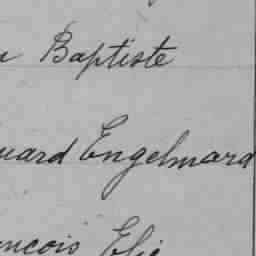 Baptiste
uard Engelmard
ncois Elie